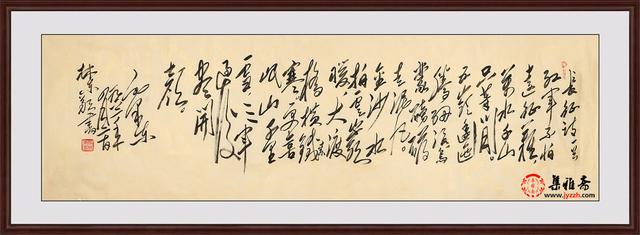 长征诗一首
红军不怕
远征难
万水千山
只等闲
五岭逶迤
腾细浪乌
蒙磅礴
走泥丸
金沙水
拍云崖
暖大渡
桥横铁索
寒更喜
岷山千里
雪三军
过后
尽开
颜
毛泽东
集雅斋
www.jyzzh.com